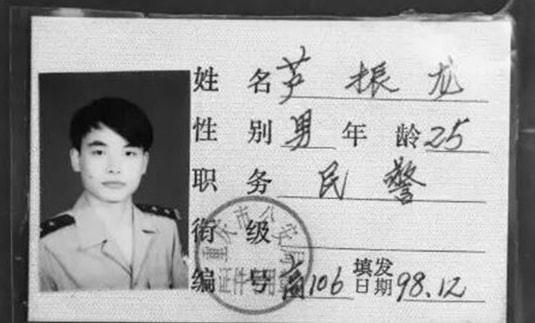 姓名 芦振龙
性别 男 年龄 25
职务 民警
衔级
编号 高106 填发日期 98.12
重庆市公安局
证件专用章